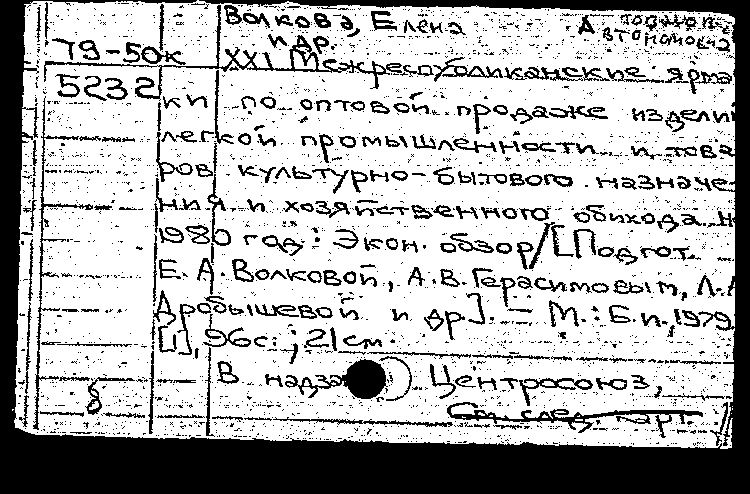 Волкова, Елена А
товаров.
и др. Автономовна
79-50к
XXI Межреспубликанские ярма
5232
ки по оптовой продаже изделий
легкой промышленности и това
ров культурно-бытового назначе
ния и хозяйственного обихода н
1980 год: Экон. обзор/[Подгот.
Е. А. Волковой, А. В. Герасимовым, Л.А
Дробышевой и др.]. — М.: Б.и., 1979
[1], 96с.; 21см.
В надза Центросоюз,
См. след. карт.